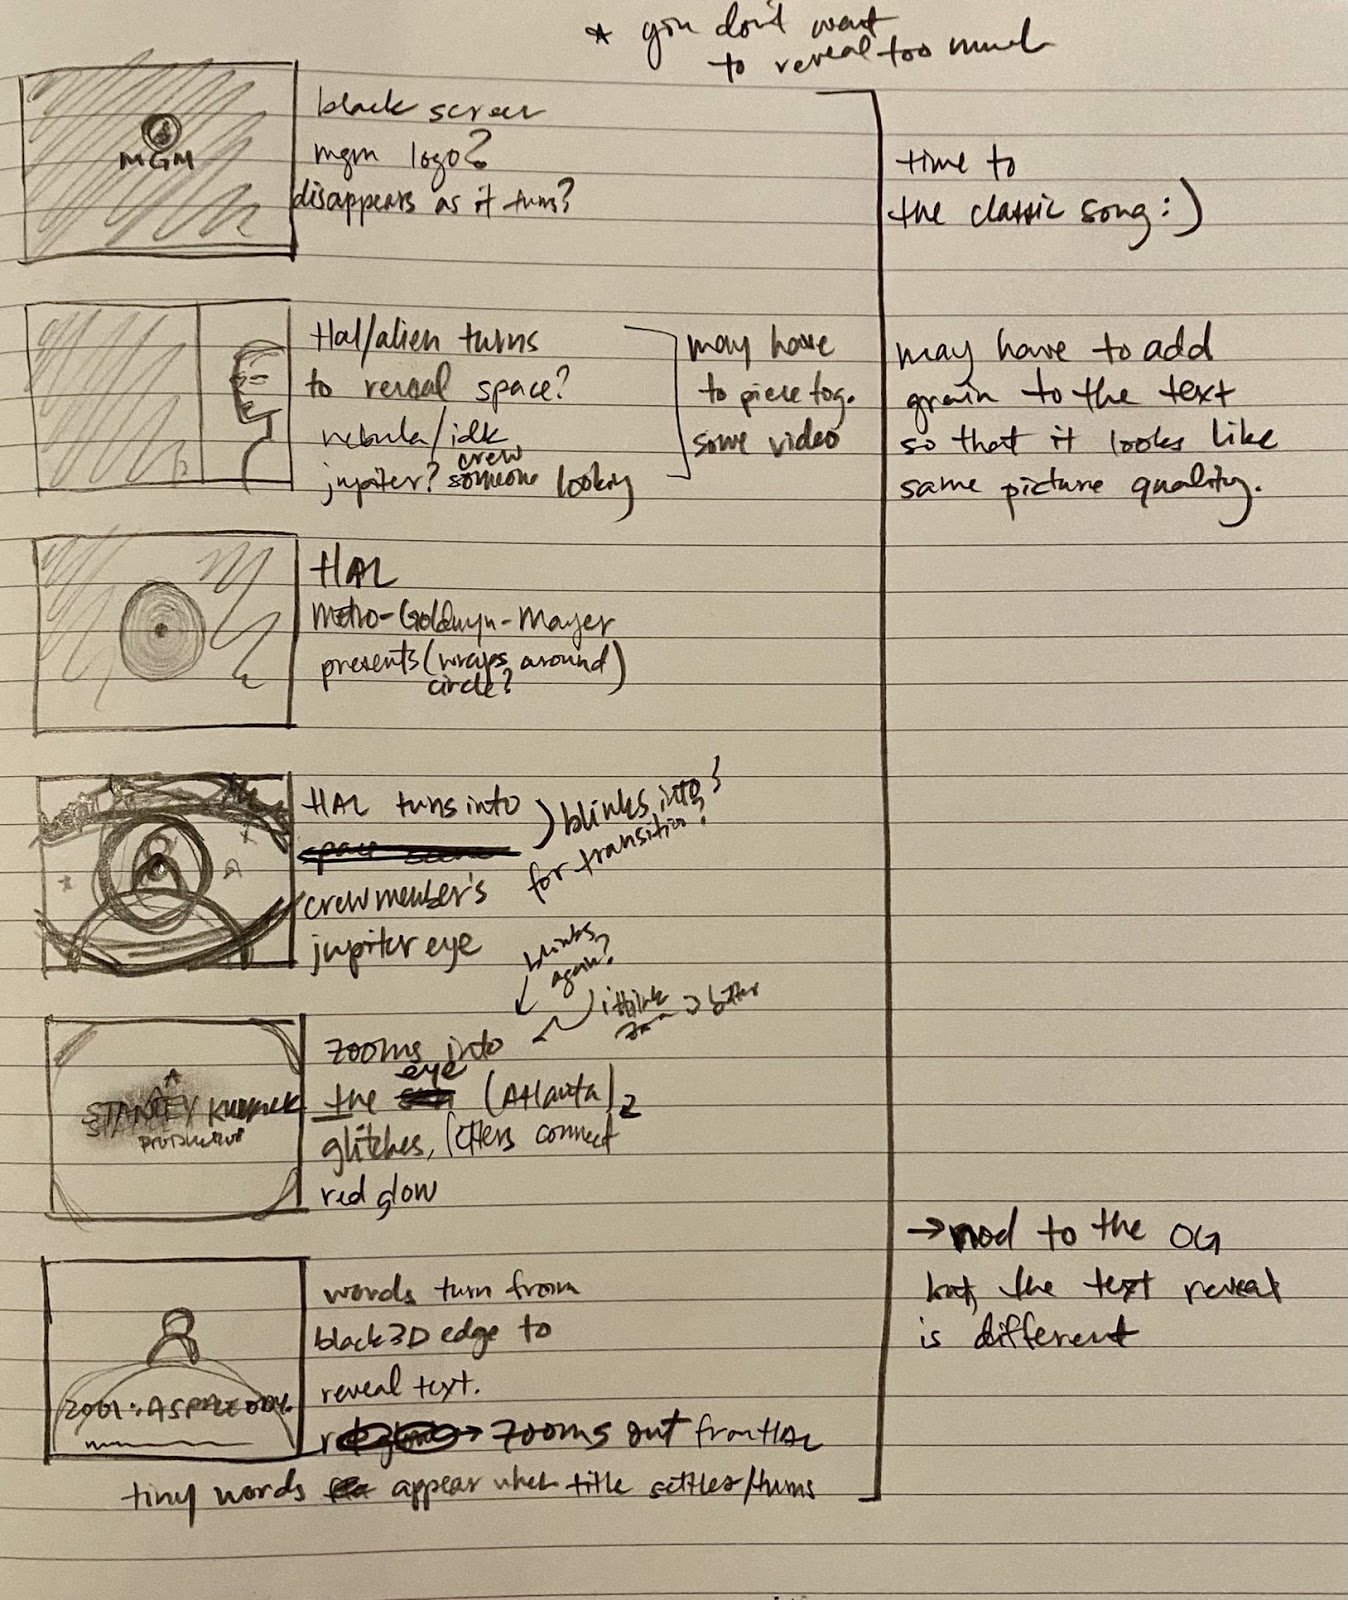 * you don't want
to reveal too much
MGM
black screen
mgm logo?
disappears as it turns?
time to
the classic song :)
Hal/alien turns
to reveal space?
nebula/idk
jupiter? crew
someone looking
may have
to piece tog.
some video
may have to add
grain to the text
so that it looks like
same picture quality.
HAL
Metro-Goldwyn-Mayer
presents (wraps around
circle?)
HAL turns into
space scene
crewmember's
jupiter eye
blinks into?
for transition?
blinks
again?
i think
zoom is better
zooms into
the eye (Atlanta)
glitches, letters connect
red glow
A
STANLEY KUBRICK
PRODUCTION
→ nod to the OG
but the text reveal
is different
words turn from
black 3D edge to
reveal text.
→ zooms out from HAL
2001: A SPACE ODY.
tiny words appear when title settles/turns